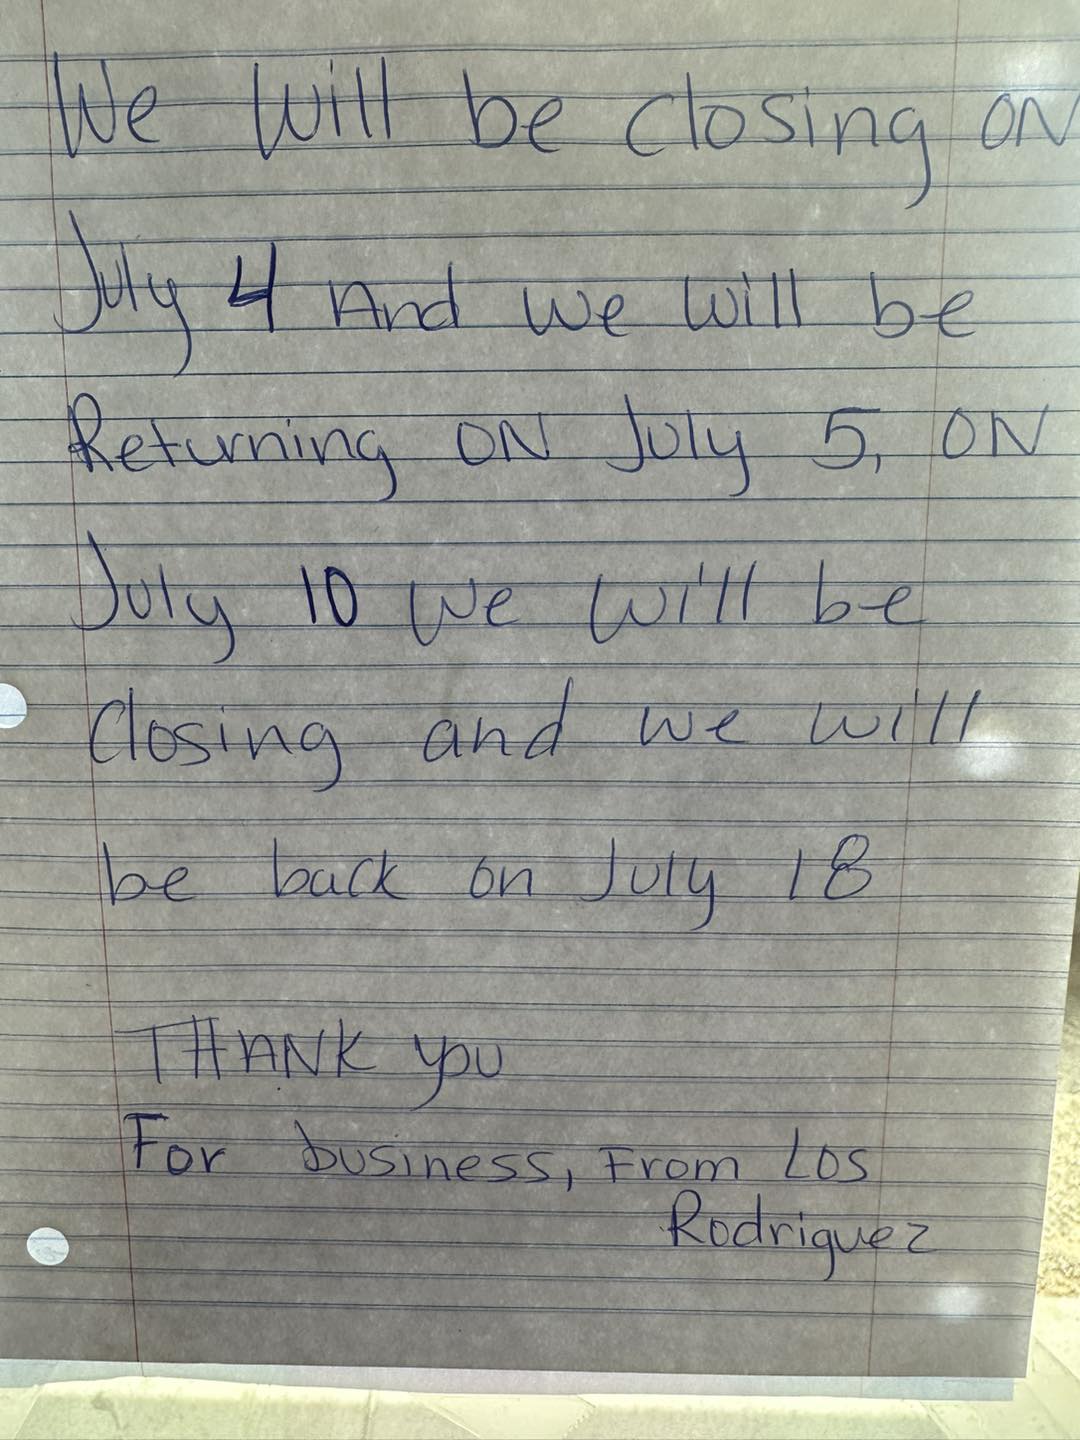 We will be closing ON
July 4 And we will be
Returning ON July 5, ON
July 10 we will be
Closing and we will
be back on July 18
THANK you
For business, From Los
Rodriguez